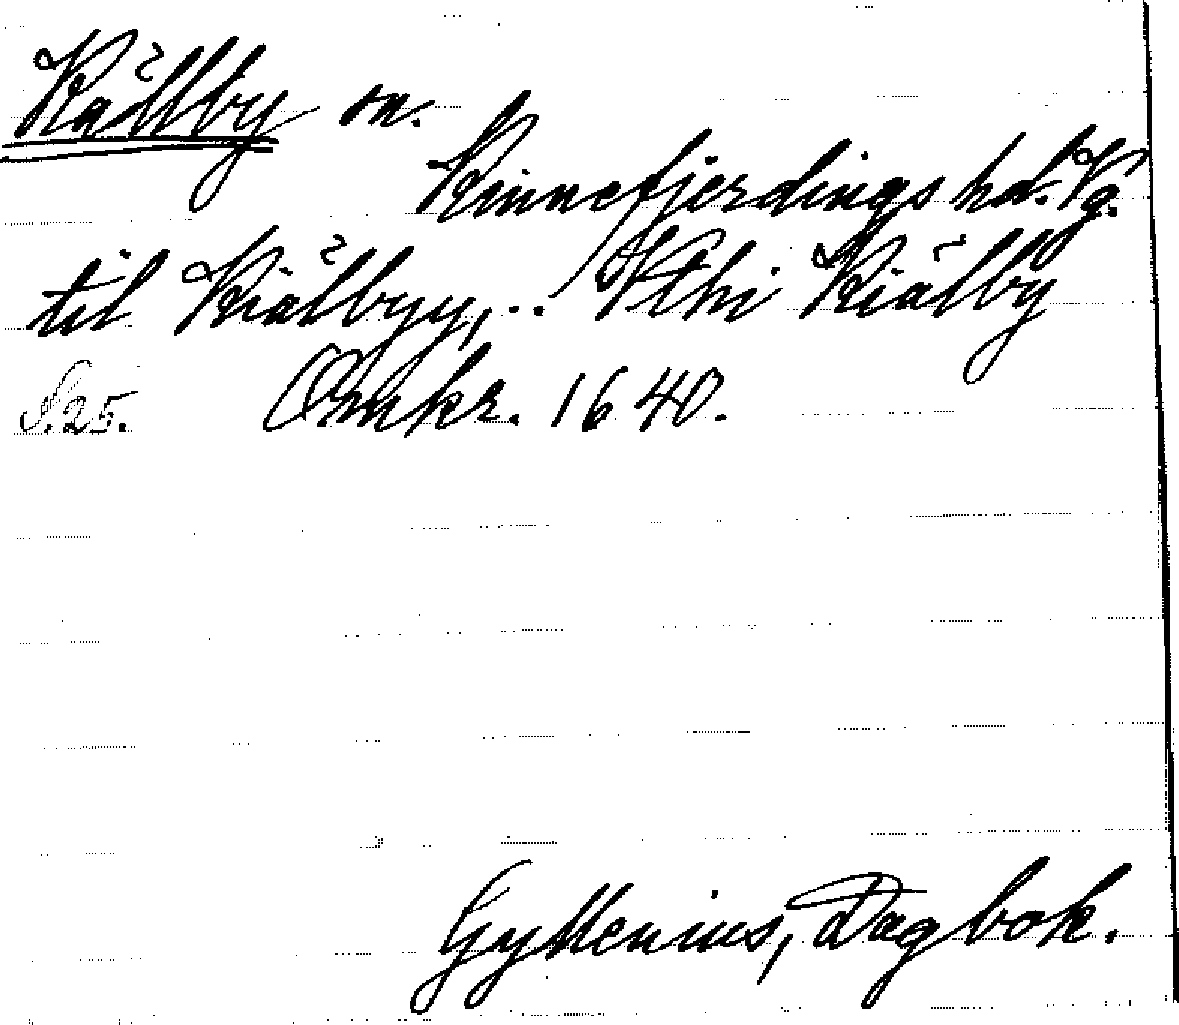 Källby sn.
Kinnefjerdings hd. Vg.
til Kiälbyy, .. Uthi Kiälby
S. 25. Omkr. 1640.
Gyllenius, Dagbok.